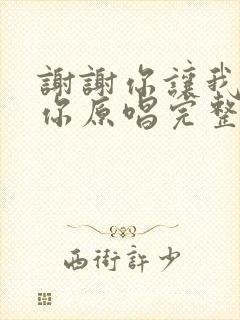 謝謝你讓我
你原唱完整
西街許少